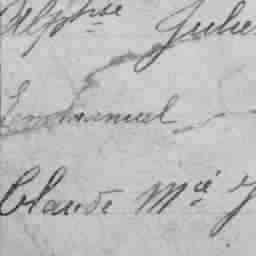 Alphse Julie
Emmanuel
Claude Mie J